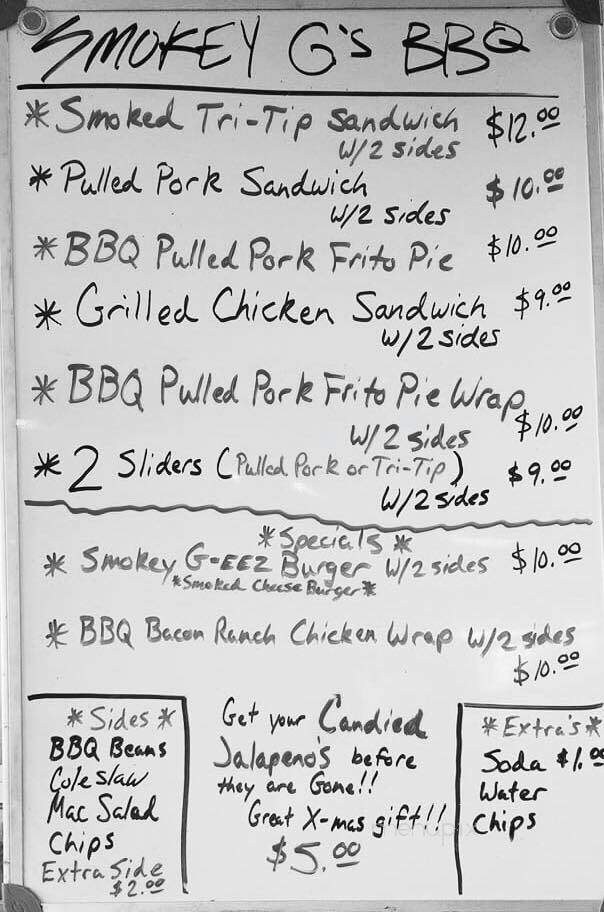 SMOKEY G's BBQ
* Smoked Tri-Tip Sandwich $12.00
W/2 sides
* Pulled Pork Sandwich $10.00
W/2 sides
* BBQ Pulled Pork Frito Pie $10.00
* Grilled Chicken Sandwich $9.00
W/2 sides
* BBQ Pulled Pork Frito Pie Wrap
W/2 sides $10.00
* 2 Sliders (Pulled Pork or Tri-Tip) $9.00
W/2 sides
* Specials *
* Smokey G-EEZ Burger W/2 sides $10.00
*Smoked Cheese Burger*
* BBQ Bacon Ranch Chicken Wrap W/2 sides
$10.00
* Sides *
BBQ Beans
Coleslaw
Mac Salad
Chips
Extra Side
$2.00
Get your Candied
Jalapeno's before
they are Gone!!
Great X-mas gift!!
$5.00
* Extra's *
Soda $1.00
Water
Chips